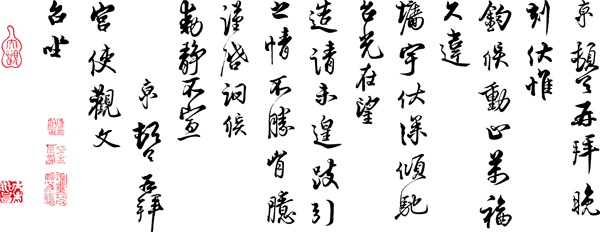 京頓首再拜晚
刻伏惟
鈞候動止萬福
久違
墻宇伏深傾馳
台光在望
造請未遑跂引
之情不勝胷臆
謹啓詞候
動靜不宣
京頓首再拜
宮使觀文
台坐